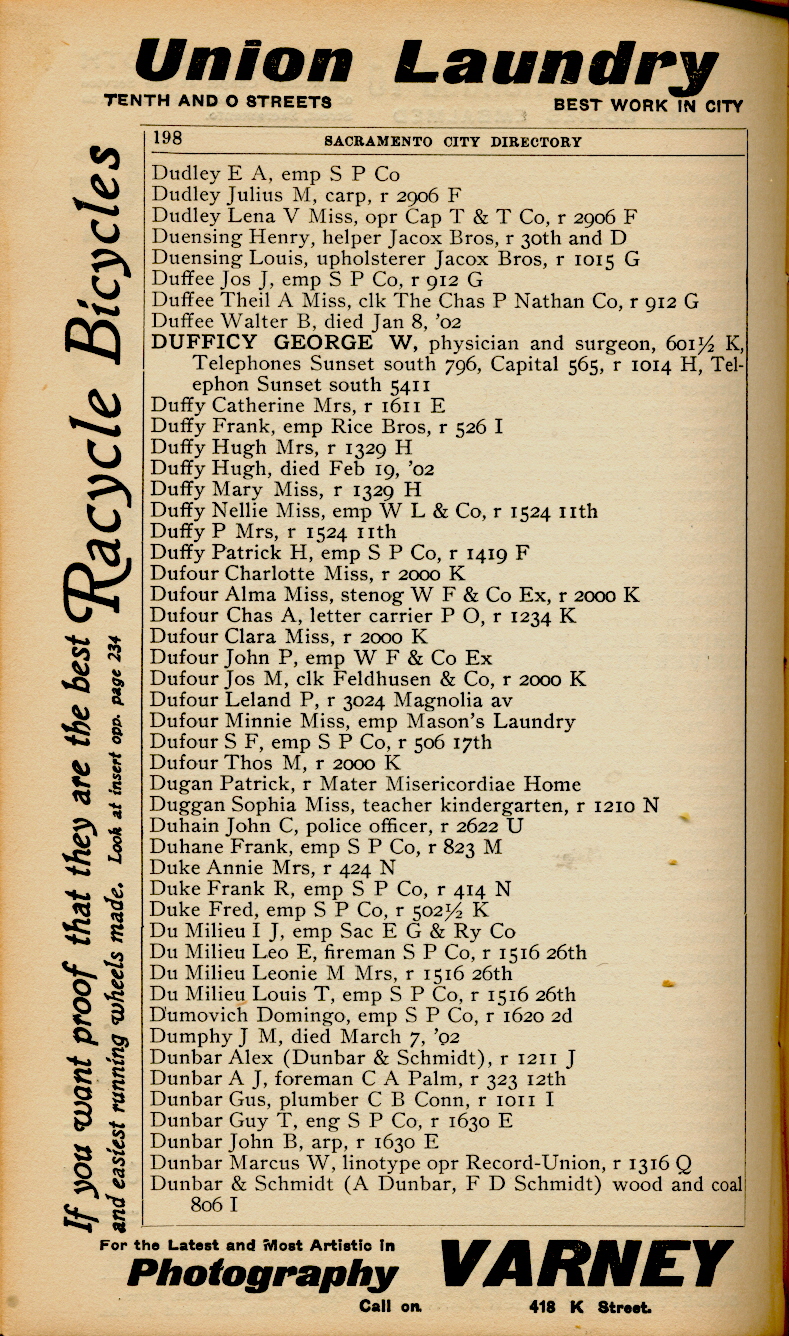 Union Laundry
TENTH AND O STREETS BEST WORK IN CITY
198 SACRAMENTO CITY DIRECTORY
Dudley E A, emp S P Co
Dudley Julius M, carp, r 2906 F
Dudley Lena V Miss, opr Cap T & T Co, r 2906 F
Duensing Henry, helper Jacox Bros, r 30th and D
Duensing Louis, upholsterer Jacox Bros, r 1015 G
Duffee Jos J, emp S P Co, r 912 G
Duffee Theil A Miss, clk The Chas P Nathan Co, r 912 G
Duffee Walter B, died Jan 8, '02
DUFFICY GEORGE W, physician and surgeon, 601½ K,
Telephones Sunset south 796, Capital 565, r 1014 H, Tel-
ephon Sunset south 5411
Duffy Catherine Mrs, r 1611 E
Duffy Frank, emp Rice Bros, r 526 I
Duffy Hugh Mrs, r 1329 H
Duffy Hugh, died Feb 19, '02
Duffy Mary Miss, r 1329 H
Duffy Nellie Miss, emp W L & Co, r 1524 11th
Duffy P Mrs, r 1524 11th
Duffy Patrick H, emp S P Co, r 1419 F
Dufour Charlotte Miss, r 2000 K
Dufour Alma Miss, stenog W F & Co Ex, r 2000 K
Dufour Chas A, letter carrier P O, r 1234 K
Dufour Clara Miss, r 2000 K
Dufour John P, emp W F & Co Ex
Dufour Jos M, clk Feldhusen & Co, r 2000 K
Dufour Leland P, r 3024 Magnolia av
Dufour Minnie Miss, emp Mason's Laundry
Dufour S F, emp S P Co, r 506 17th
Dufour Thos M, r 2000 K
Dugan Patrick, r Mater Misericordiae Home
Duggan Sophia Miss, teacher kindergarten, r 1210 N
Duhain John C, police officer, r 2622 U
Duhane Frank, emp S P Co, r 823 M
Duke Annie Mrs, r 424 N
Duke Frank R, emp S P Co, r 414 N
Duke Fred, emp S P Co, r 502½ K
Du Milieu I J, emp Sac E G & Ry Co
Du Milieu Leo E, fireman S P Co, r 1516 26th
Du Milieu Leonie M Mrs, r 1516 26th
Du Milieu Louis T, emp S P Co, r 1516 26th
Dumovich Domingo, emp S P Co, r 1620 2d
Dumphy J M, died March 7, '02
Dunbar Alex (Dunbar & Schmidt), r 1211 J
Dunbar A J, foreman C A Palm, r 323 12th
Dunbar Gus, plumber C B Conn, r 1011 I
Dunbar Guy T, eng S P Co, r 1630 E
Dunbar John B, arp, r 1630 E
Dunbar Marcus W, linotype opr Record-Union, r 1316 Q
Dunbar & Schmidt (A Dunbar, F D Schmidt) wood and coal
806 I
If you want proof that they are the best Racycle Bicycles
and easiest running wheels made. Look at insert opp. page 234
For the Latest and Most Artistic in
Photography VARNEY
Call on 418 K Street.